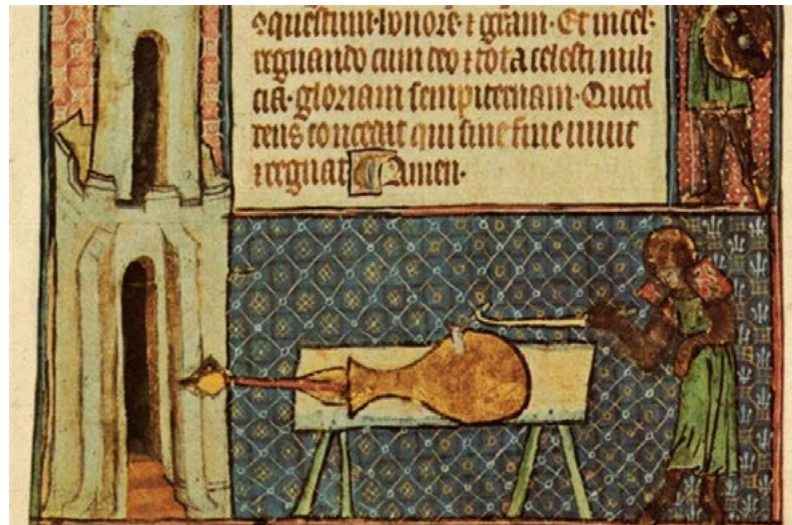 ⁊ questiuit·honorē·⁊ grām·Et in cel·
regnando cum deo ⁊ tota celesti mili
cia·gloriam sempiternam·Quod
rens concedat qui sine fine uiuit
⁊ regnat Amen·